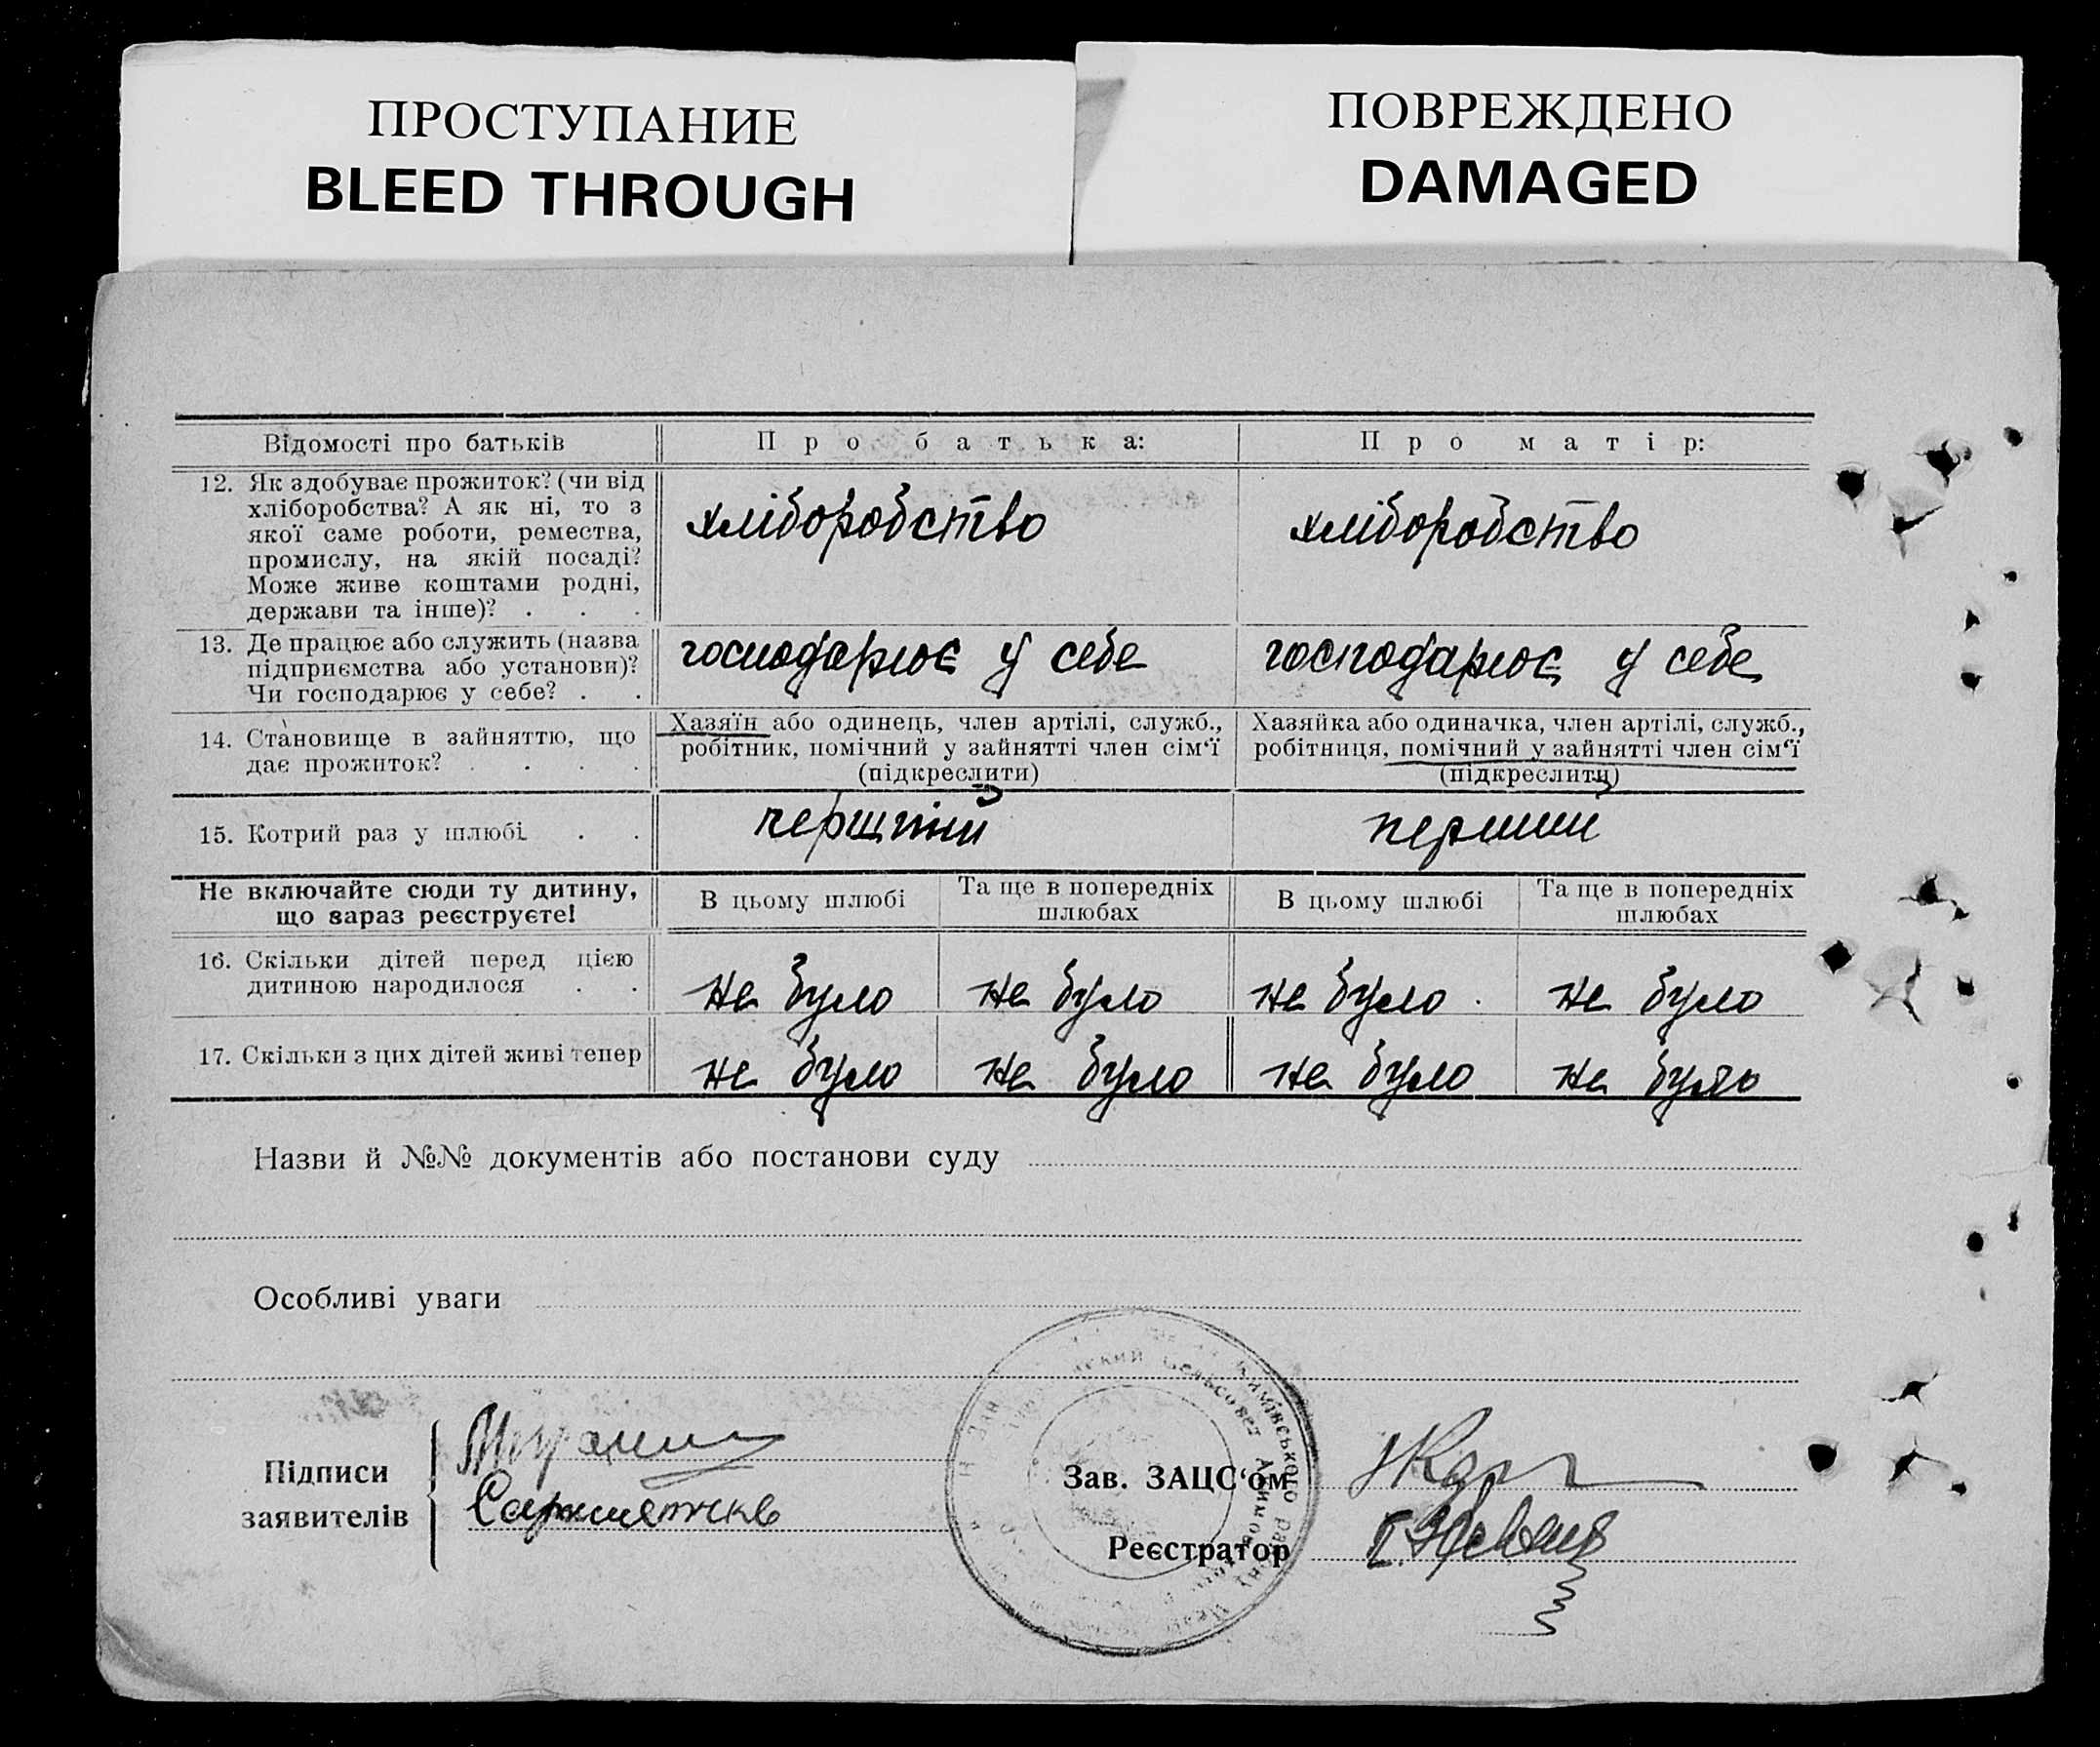 ПРОСТУПАНИЕ
BLEED THROUGH
ПОВРЕЖДЕНО
DAMAGED
Відомості про батьків
Про батька:
Про матір:
12. Як здобуває прожиток? (чи від
хліборобства? А як ні, то з
якої саме роботи, ремества,
промислу, на якій посаді?
Може живе коштами родні,
держави та інше)? . . .
хліборобство
хліборобство
13. Де працює або служить (назва
підприємства або установи)?
Чи господарює у себе? . .
господарює у себе
господарює у себе
14. Становище в зайняттю, що
дає прожиток? . . . .
Хазяїн або одинець, член артілі, служб.,
робітник, помічний у зайнятті член сім‘ї
(підкреслити)
Хазяйка або одиначка, член артілі, служб.,
робітниця, помічний у зайнятті член сім‘ї
(підкреслити)
15. Котрий раз у шлюбі . .
перший
Не включайте сюди ту дитину,
що зараз реєструєте!
В цьому шлюбі
Та ще в попередніх
шлюбах
В цьому шлюбі
Та ще в попередніх
шлюбах
16. Скільки дітей перед цією
дитиною народилося . .
не було
не було
не було .
не було
17. Скільки з цих дітей живі тепер
не було
не було
не було
не було
Назви й №№ документів або постанови суду
Особливі уваги
Підписи
заявителів
Зав. ЗАЦС‘ом
Реєстратор